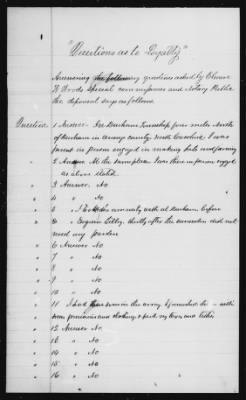 "Questions as to Loyalty"
Answering the following questions asked by Clinton
H Woods special commissioner and Notary Public
the deponent says as follows
Question 1 Answer. In Durham Township four miles North
of Durham in Orange county, North Carolina. I was
there in person engaged in making hats and farming
" 2 Answer. At the same place I was there in person engaged
as above stated
" 3 Answer. No
" 4 " No
" 5 " I took the amnesty oath at Durham before
" Eugene Lilly, shortly after the surrender and not
need my pardon
" 6 Answer No
" 7 " No
" 8 " No
" 9 " No
" 10 " No
" 11 I had sons in the army
them provisions and clothing &
" 12 Answer No
" 13 " No
" 14 " No
" 15 " No
" 16 " No